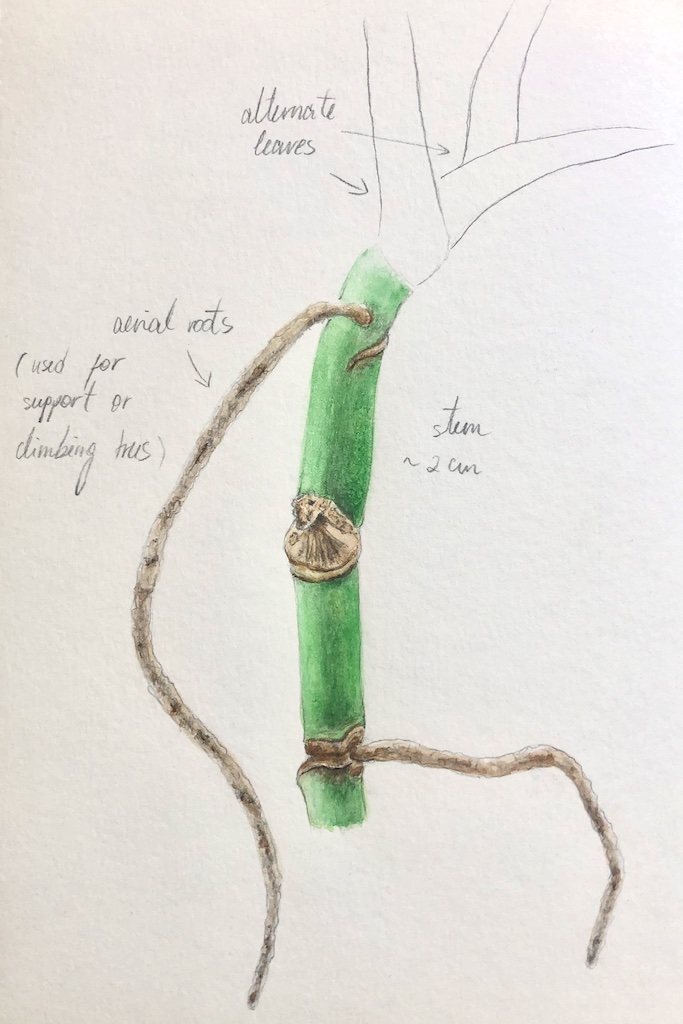 alternate
leaves
aerial roots
(used for
support or
climbing trees)
stem
~ 2 cm